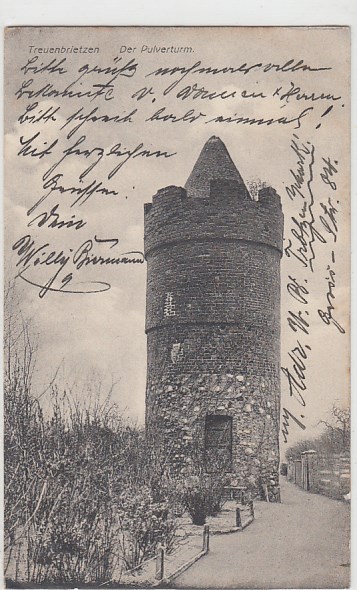 Treuenbrietzen Der Pulverturm.
Bitte grüß nochmals alle
Bekannte v. Damen & Herren.
Bitte schreib bald einmal!
Mit herzlichen
Grüssen
Dein
Willy Biermann
m. Adr. W. B. Treuen
Str. 84.